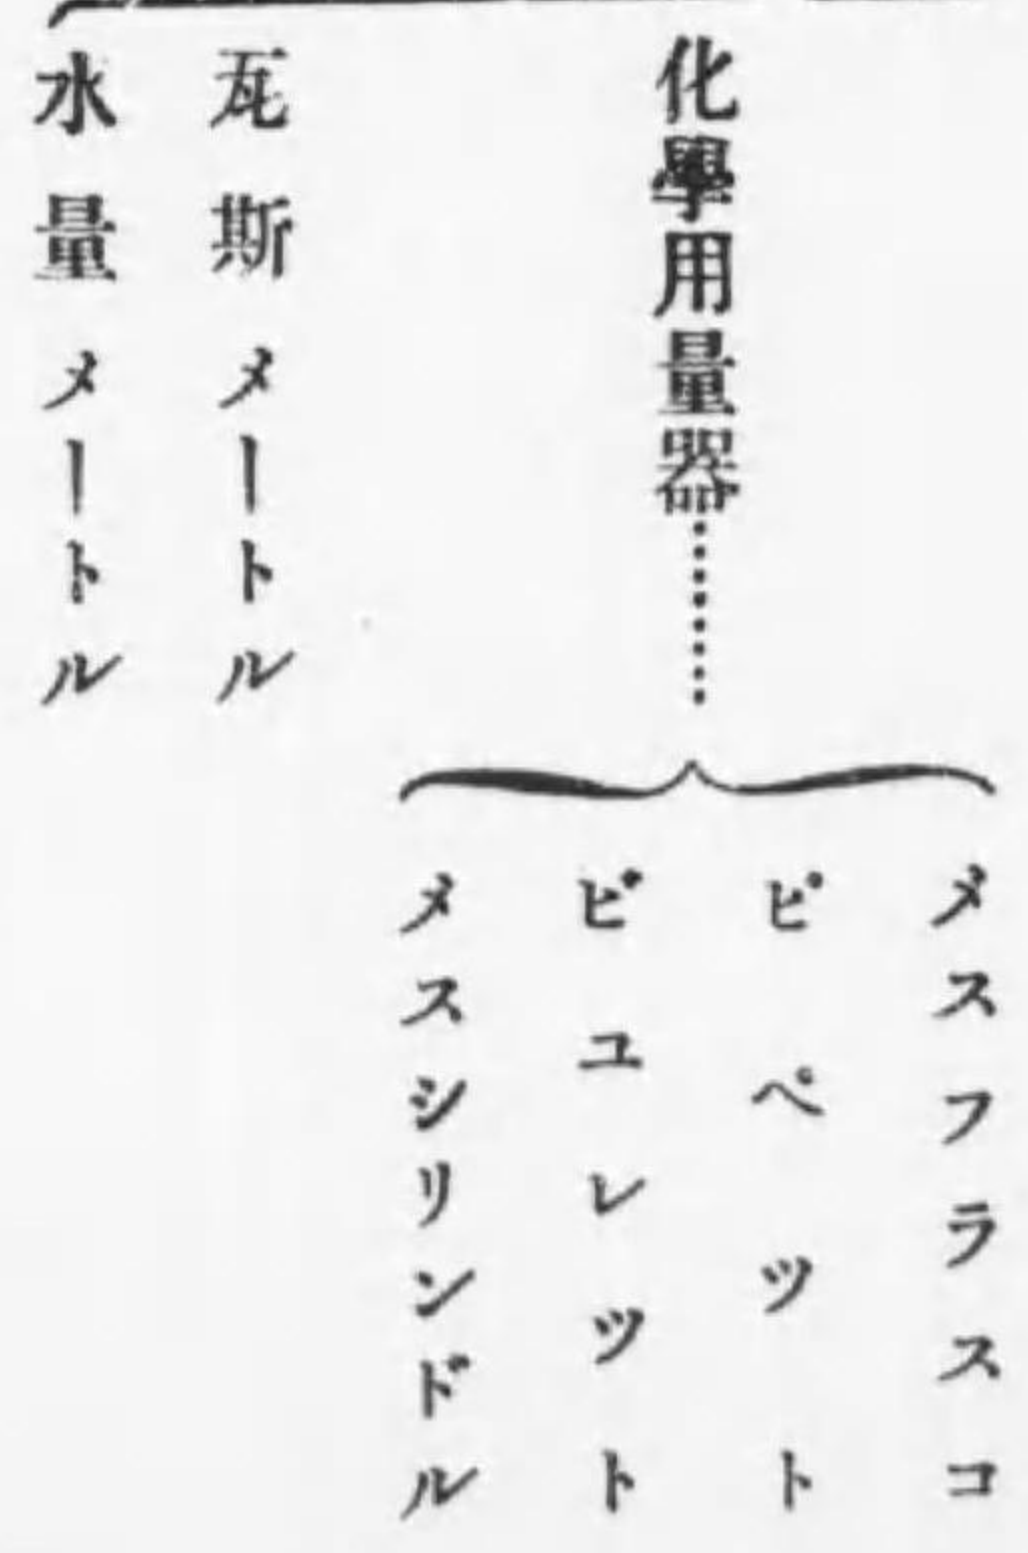 化學用量器
メスフラスコ
ピペツト
ビユレツト
メスシリンドル
瓦斯メートル
水量メートル